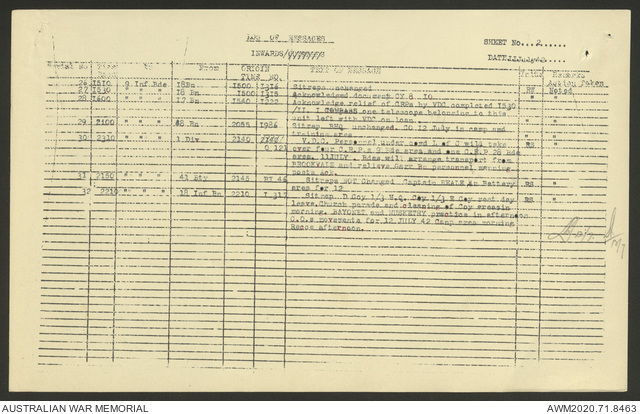 LOG OF MESSAGES
SHEET No. 2
INWARDS
DATE
Serial No Time To From ORIGIN TEXT OF MESSAGE Remarks
TIME NO. Action Taken
26 1510 9 Inf Bde 18Bn 1500 I316 Sitreps unchanged RF Noted
27 1530 " " " 18 Bn 1500 I315 Acknowledged document CY 8 IO RF "
28 1600 " " " 17 Bn 1540 Acknowledge relief of ORBs by VDC completed I530
/II. I COMPASS one telescope belonging to this
unit left with VDC on loan.
29 2100 " " " Bn 2055 I986 Sitrep BHQ unchanged. CO 12 July in camp and
training area
30 2310 " " 1 Div 2140 V.D.C. Personnel under comd L of C will take
O.121 over four C.R.P.s 9 Bde area and one C.R.P 28 Bde
area. 11JULY. Bdes will arrange transport from
BROOKVALE and relieve Garr Bn personnel morning
pasts ack.
31 2150 " " " 41 Bty 2145 BT 46 Sitrep NOT Changed Captain BEALE At Battery RS "
area for 12
32 2210 " " " 18 Inf Bn 2210 I 317 Sitrep. D Coy 1/3 H.Q. Coy 1/3 E Coy rest day RS "
leave. Church parade and cleaning of Coy areas in
morning. BAYONET and MUSKETRY practice in afternoon
C.O.S movements for 12 JULY 42 Camp area morning
Recce afternoon.
AUSTRALIAN WAR MEMORIAL
AWM2020.71.8463